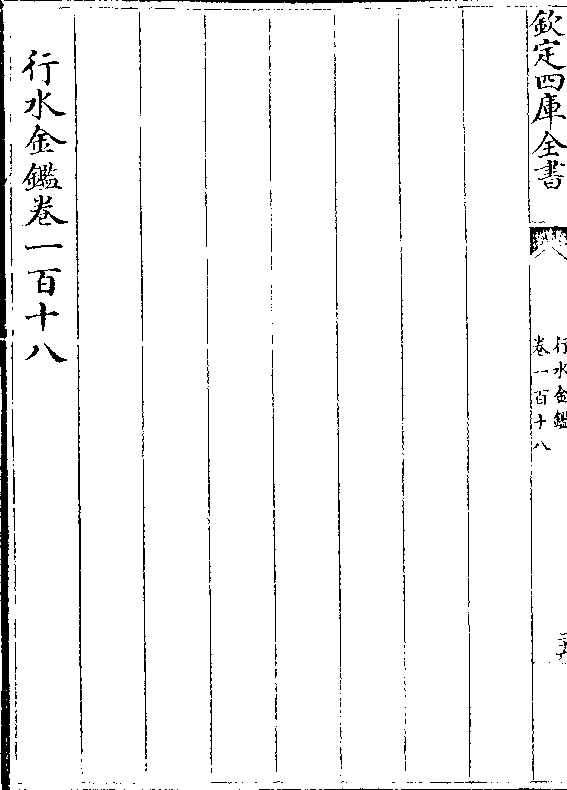 欽定四庫全書
行水金鑑
卷一百十八
行水金鑑卷一百十八